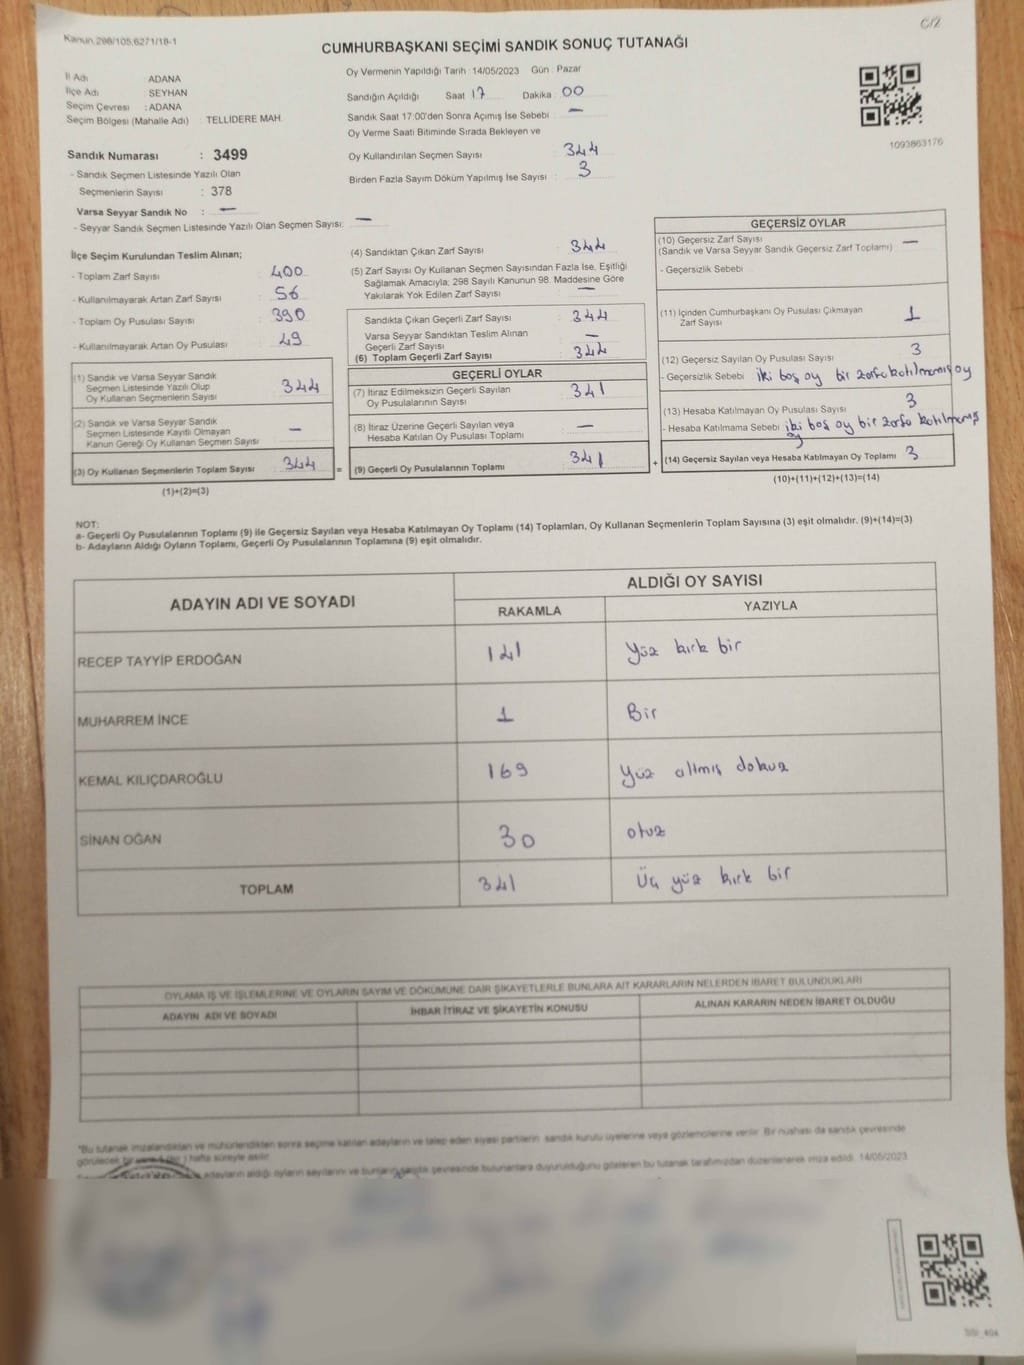 6/2
Kanun 298/105,6271/18-1
CUMHURBAŞKANI SEÇİMİ SANDIK SONUÇ TUTANAĞI
İl Adı ADANA
İlçe Adı SEYHAN
Seçim Çevresi : ADANA
Seçim Bölgesi (Mahalle Adı) : TELLİDERE MAH.
Sandık Numarası : 3499
- Sandık Seçmen Listesinde Yazılı Olan
Seçmenlerin Sayısı : 378
Varsa Seyyar Sandık No : —
- Seyyar Sandık Seçmen Listesinde Yazılı Olan Seçmen Sayısı: —
Oy Vermenin Yapıldığı Tarih : 14/05/2023 Gün : Pazar
Sandığın Açıldığı Saat 17 Dakika 00
Sandık Saat 17:00'den Sonra Açımış İse Sebebi : —
Oy Verme Saati Bitiminde Sırada Bekleyen ve
Oy Kullandırılan Seçmen Sayısı : 344
Birden Fazla Sayım Döküm Yapılmış İse Sayısı : 3
1093863176
İlçe Seçim Kurulundan Teslim Alınan;
- Toplam Zarf Sayısı : 400
- Kullanılmayarak Artan Zarf Sayısı : 56
- Toplam Oy Pusulası Sayısı : 390
- Kullanılmayarak Artan Oy Pusulası : 49
(1) Sandık ve Varsa Seyyar Sandık
Seçmen Listesinde Yazılı Olup
Oy Kullanan Seçmenlerin Sayısı : 344
(2) Sandık ve Varsa Seyyar Sandık
Seçmen Listesinde Kayıtlı Olmayan
Kanun Gereği Oy Kullanan Seçmen Sayısı : —
(3) Oy Kullanan Seçmenlerin Toplam Sayısı : 344 =
(1)+(2)=(3)
(4) Sandıktan Çıkan Zarf Sayısı : 344
(5) Zarf Sayısı Oy Kullanan Seçmen Sayısından Fazla İse, Eşitliği
Sağlamak Amacıyla; 298 Sayılı Kanunun 98. Maddesine Göre
Yakılarak Yok Edilen Zarf Sayısı : —
Sandıkta Çıkan Geçerli Zarf Sayısı : 344
Varsa Seyyar Sandıktan Teslim Alınan
Geçerli Zarf Sayısı : —
(6) Toplam Geçerli Zarf Sayısı : 344
GEÇERLİ OYLAR
(7) İtiraz Edilmeksizin Geçerli Sayılan
Oy Pusulalarının Sayısı : 341
(8) İtiraz Üzerine Geçerli Sayılan veya
Hesaba Katılan Oy Pusulası Toplamı : —
(9) Geçerli Oy Pusulalarının Toplamı : 341 +
GEÇERSİZ OYLAR
(10) Geçersiz Zarf Sayısı : —
(Sandık ve Varsa Seyyar Sandık Geçersiz Zarf Toplamı)
- Geçersizlik Sebebi
(11) İçinden Cumhurbaşkanı Oy Pusulası Çıkmayan
Zarf Sayısı : 1
(12) Geçersiz Sayılan Oy Pusulası Sayısı : 3
- Geçersizlik Sebebi iki boş oy bir zarfa katılmamış oy
(13) Hesaba Katılmayan Oy Pusulası Sayısı : 3
- Hesaba Katılmama Sebebi iki boş oy bir zarfa katılmamış
oy
(14) Geçersiz Sayılan veya Hesaba Katılmayan Oy Toplamı : 3
(10)+(11)+(12)+(13)=(14)
NOT:
a- Geçerli Oy Pusulalarının Toplamı (9) ile Geçersiz Sayılan veya Hesaba Katılmayan Oy Toplamı (14) Toplamları, Oy Kullanan Seçmenlerin Toplam Sayısına (3) eşit olmalıdır. (9)+(14)=(3)
b- Adayların Aldığı Oyların Toplamı, Geçerli Oy Pusulalarının Toplamına (9) eşit olmalıdır.
ADAYIN ADI VE SOYADI ALDIĞI OY SAYISI
RAKAMLA YAZIYLA
RECEP TAYYİP ERDOĞAN 141 Yüz kırk bir
MUHARREM İNCE 1 Bir
KEMAL KILIÇDAROĞLU 169 Yüz altmış dokuz
SİNAN OĞAN 30 otuz
TOPLAM 341 Üç yüz kırk bir
OYLAMA İŞ VE İŞLEMLERİNE VE OYLARIN SAYIM VE DÖKÜMÜNE DAİR ŞİKAYETLERLE BUNLARA AİT KARARLARIN NELERDEN İBARET BULUNDUKLARI
ADAYIN ADI VE SOYADI İHBAR İTİRAZ VE ŞİKAYETİN KONUSU ALINAN KARARIN NEDEN İBARET OLDUĞU
*Bu tutanak imzalandıktan ve mühürlendikten sonra seçime katılan adayların ve talep eden siyasi partilerin sandık kurulu üyelerine veya gözlemcilerine verilir. Bir nüshası da sandık çevresinde
görülecek bir hafta süreyle asılır.
adayların aldığı oyların sayılarını ve bunların sandık çevresinde bulunanlara duyurulduğunu gösteren bu tutanak tarafımızdan düzenlenerek imza edildi. 14/05/2023